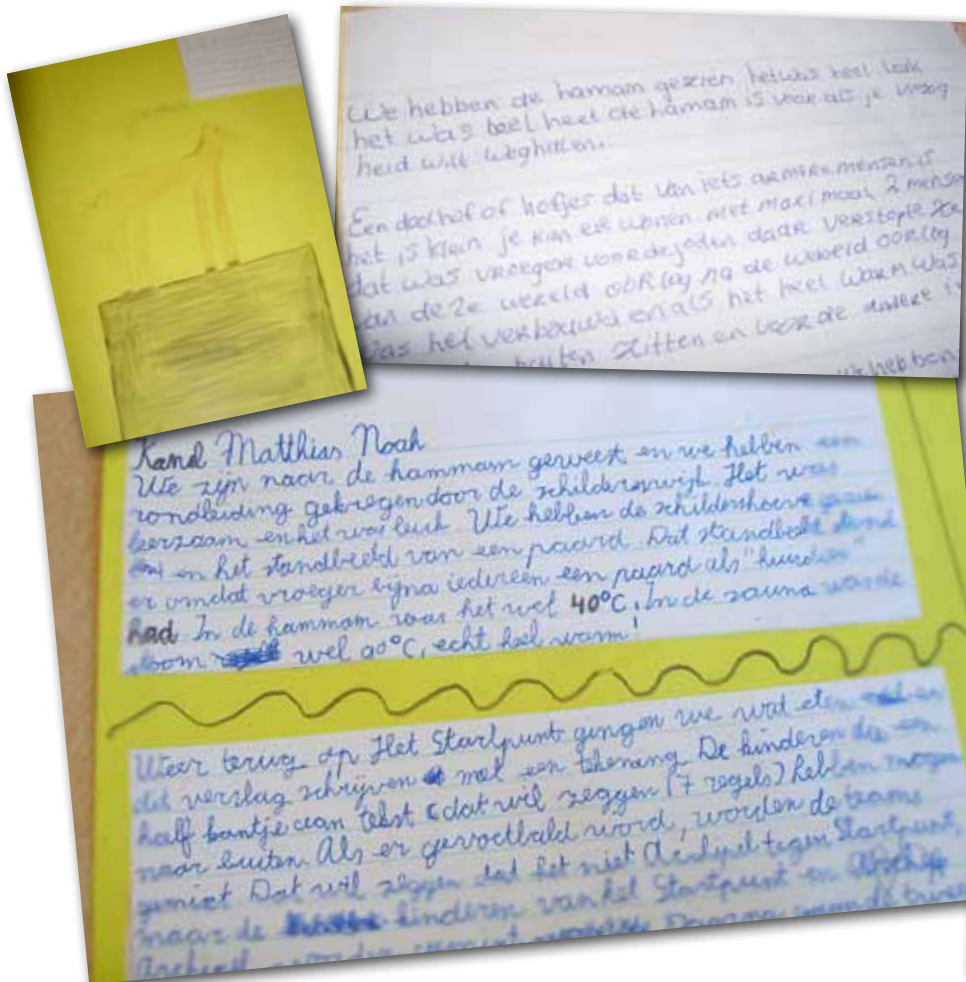 We hebben de hamam gezien het was heel leuk
het was heel heet de hamam is voor als je
heid wilt weghalen.
Een doolhof of hofjes dat van iets armere mensen is
het is klein je kan er wonen met maximaal 2 mense
dat was vroeger voor de joden daar verstopte ze
van de 2e wereld oorlog na de wereld oorlog
was het verbouwd en als het heel warm was
buiten zitten en voor de andere i
hebben
Karel Matthias Noah
We zijn naar de hammam geweest en we hebben een
rondleiding gekregen door de schilderswijk. Het was
leerzaam en het was leuk. We hebben de schildershoeve
en het standbeeld van een paard. Dat standbeeld stond
er omdat vroeger bijna iedereen een paard als "huisdier"
had In de hammam was het wel 40°C. In de sauna
stoom wel 90°C, echt heel warm!
Weer terug op Het Startpunt gingen we wat eten en
dit verslag schrijven met een tekening. De kinderen die een
half kantje aan tekst (dat wil zeggen 17 regels) hebben mogen
naar buiten. Als er gevoetbald word, worden de teams
gemixt Dat wil zeggen dat het niet Archipel tegen Startpunt,
maar de kinderen van het Startpunt en
Archipel gemixt Daarna